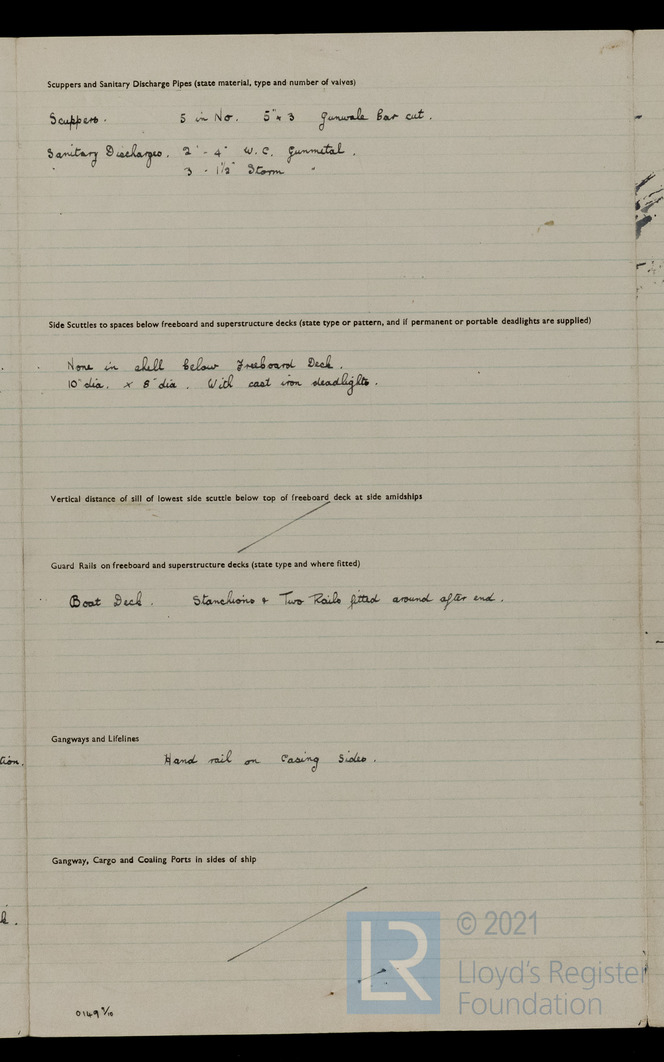 Scuppers and Sanitary Discharge Pipes (state material, type and number of valves)
Scuppers. 5 in No. 5" x 3 Gunwale Bar cut.
Sanitary Discharges. 2 - 4" W.C. Gunmetal.
" 3 - 1½" Storm "
Side Scuttles to spaces below freeboard and superstructure decks (state type or pattern, and if permanent or portable deadlights are supplied)
None in shell below Freeboard Deck.
10" dia. x 8" dia. With cast iron deadlights.
Vertical distance of sill of lowest side scuttle below top of freeboard deck at side amidships
Guard Rails on freeboard and superstructure decks (state type and where fitted)
Boat Deck. Stanchions & Two Rails fitted around after end.
Gangways and Lifelines
tion.
Hand rail on Casing Sides.
Gangway, Cargo and Coaling Ports in sides of ship
k.
© 2021
LR
Lloyd's Register
Foundation
0149 9/10